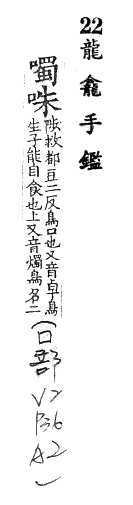 22龍龕手鑑
噣咮陟救都豆二反鳥口也又音卓鳥
生子能自食也上又音燭鳥名二
(口部 V2 P36 A2)